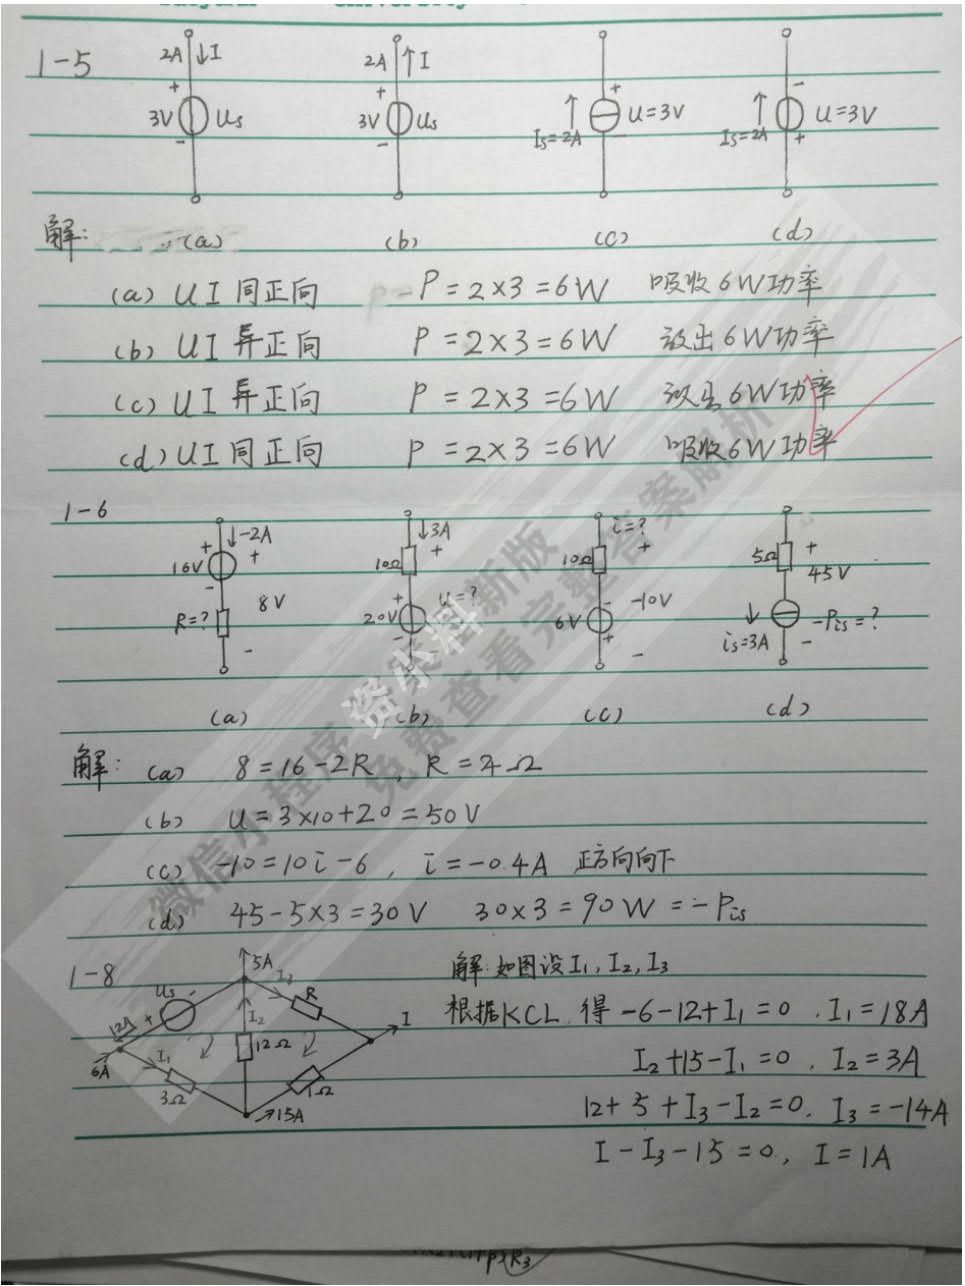 1-5
2A ↓I 2A ↑I
+ + + -
3V Us 3V Us Is=2A U=3V Is=2A U=3V
- - - +
解: (a) (b) (c) (d)
(a) UI 同正向 P=2×3=6W 吸收6W功率
(b) UI 异正向 P=2×3=6W 放出6W功率
(c) UI 异正向 P=2×3=6W 放出6W功率
(d) UI 同正向 P=2×3=6W 吸收6W功率
1-6
↓-2A ↓3A i=?
+ + + +
16V 10Ω 10Ω 5Ω 45V
- 8V + u=? - -10V
R=? 20V 6V is=3A -Pis=?
- - + - -
(a) (b) (c) (d)
解: (a) 8=16-2R, R=4Ω
(b) U=3×10+20=50V
(c) -10=10i-6, i=-0.4A 正方向向下
(d) 45-5×3=30V 30×3=90W=-Pis
1-8
5A
Us I3 R
12A + I2 I
12Ω
6A I1
3Ω 1Ω
15A
解:如图设I1,I2,I3
根据KCL,得-6-12+I1=0, I1=18A
I2+15-I1=0, I2=3A
12+5+I3-I2=0, I3=-14A
I-I3-15=0, I=1A
微信小程序 资小料
免费查看完整答案解析